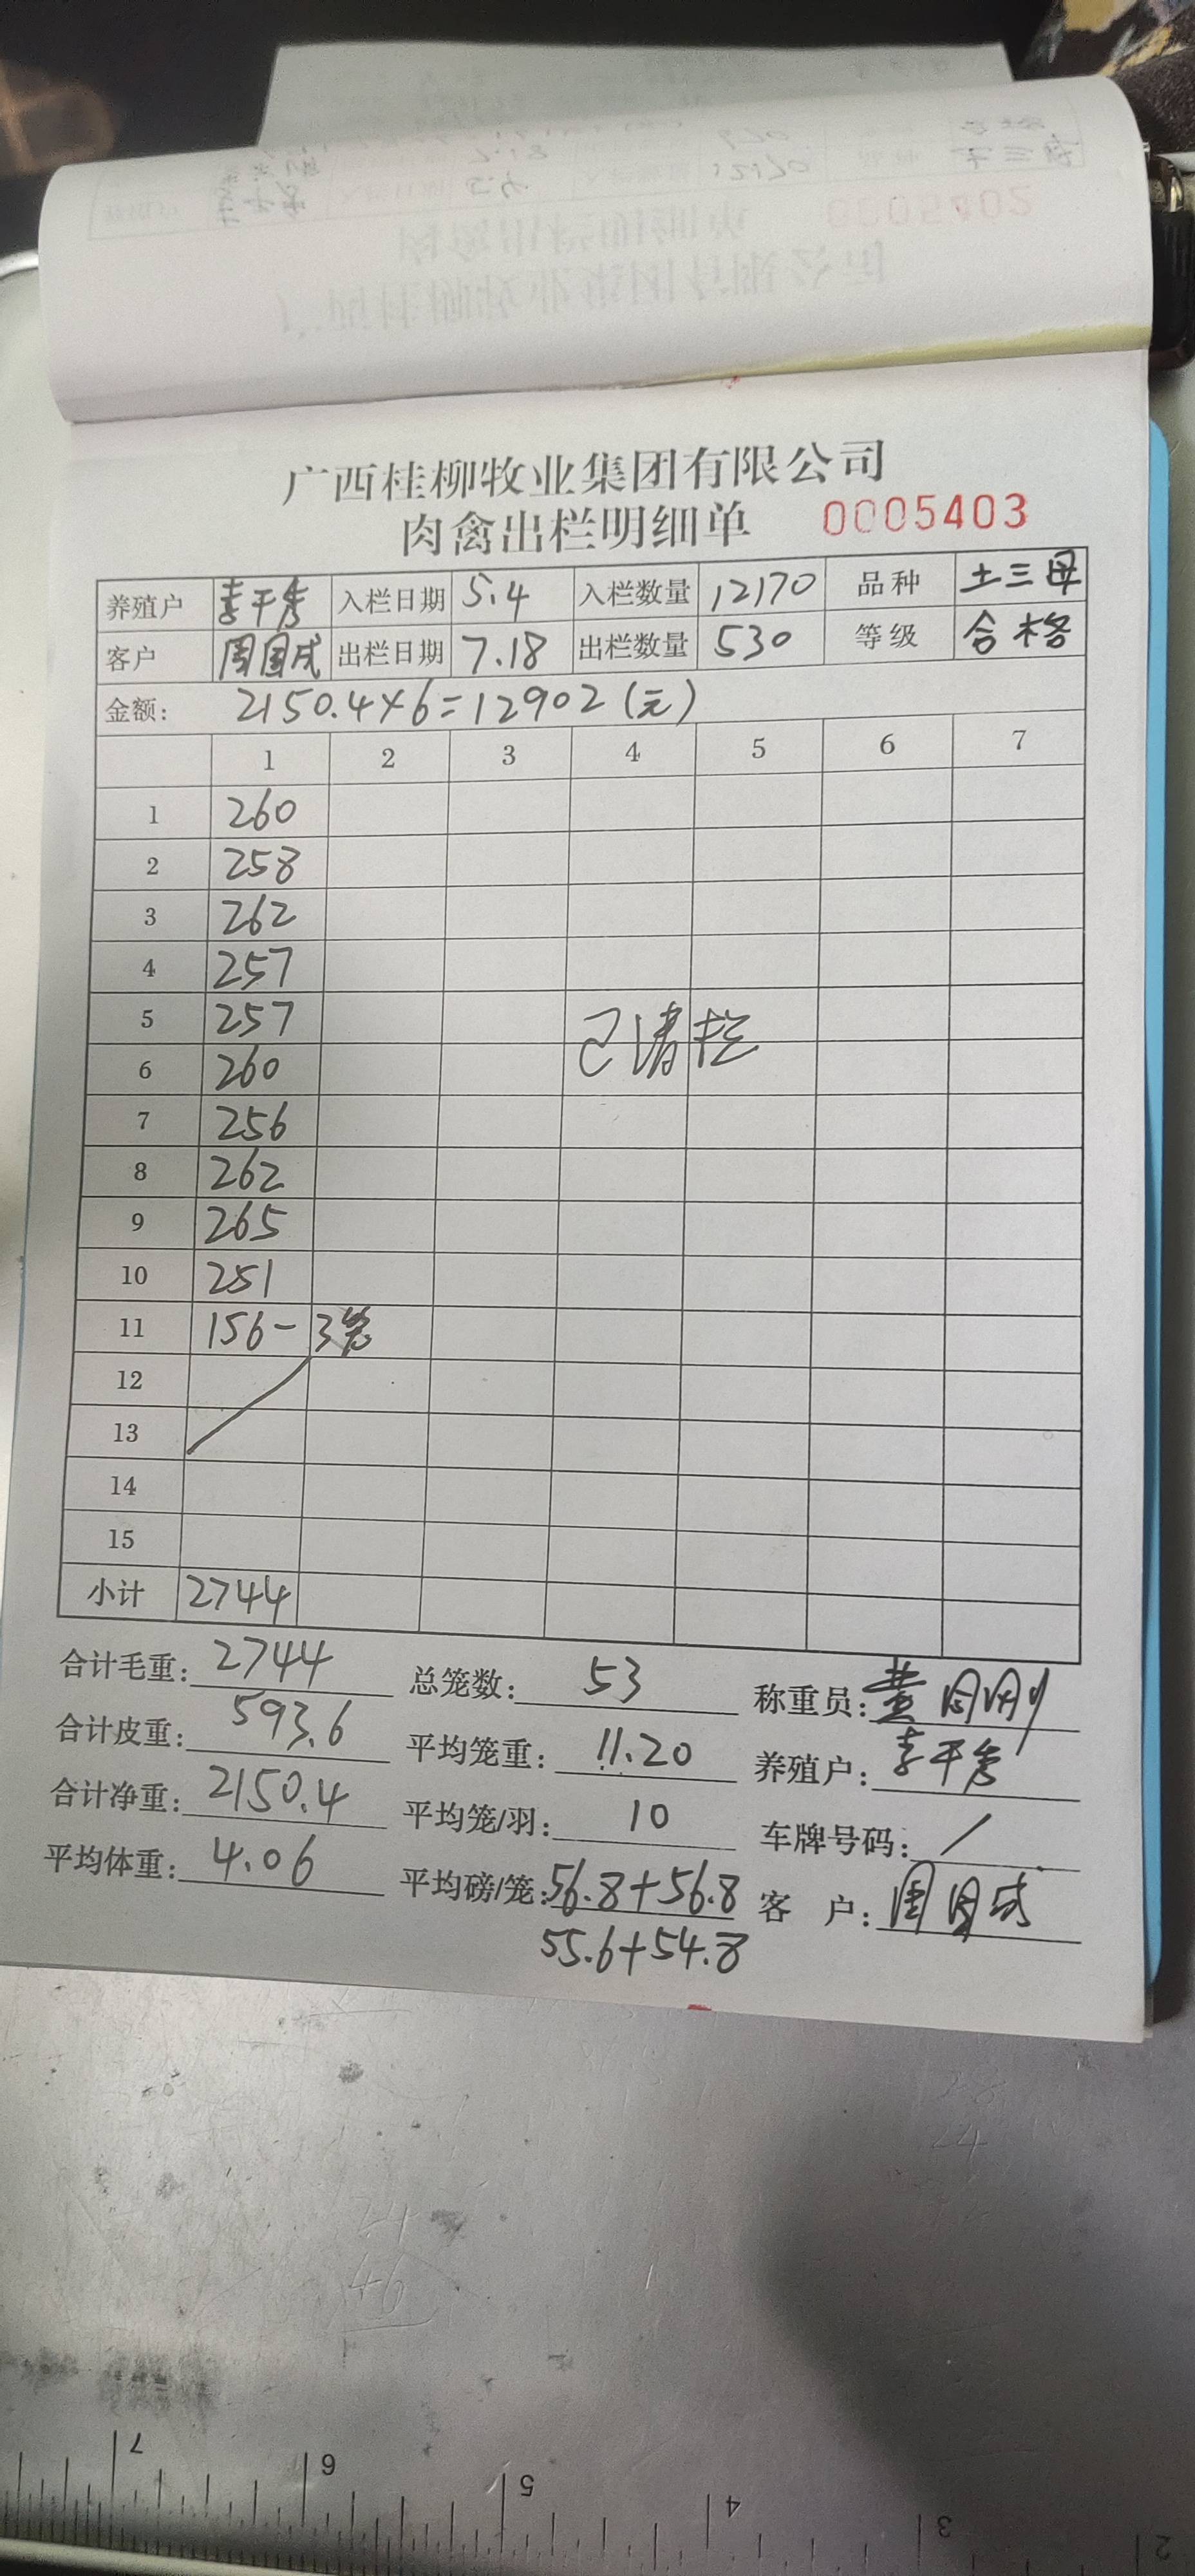 广西桂柳牧业集团有限公司
肉禽出栏明细单 0005403
养殖户 李干秀 入栏日期 5.4 入栏数量 12170 品种 土三母
客户 周国成 出栏日期 7.18 出栏数量 530 等级 合格
金额: 2150.4×6=12902(元)
1 2 3 4 5 6 7
1 260
2 258
3 262
4 257
5 257 已清栏
6 260
7 256
8 262
9 265
10 251
11 156-3笼
12
13
14
15
小计 2744
合计毛重: 2744 总笼数: 53 称重员: 黄
合计皮重: 593.6 平均笼重: 11.20 养殖户: 李干秀
合计净重: 2150.4 平均笼/羽: 10 车牌号码: /
平均体重: 4.06 平均磅/笼: 56.8+56.8 客 户: 周国成
55.6+54.8
0005402
7 6 5 4 3 2